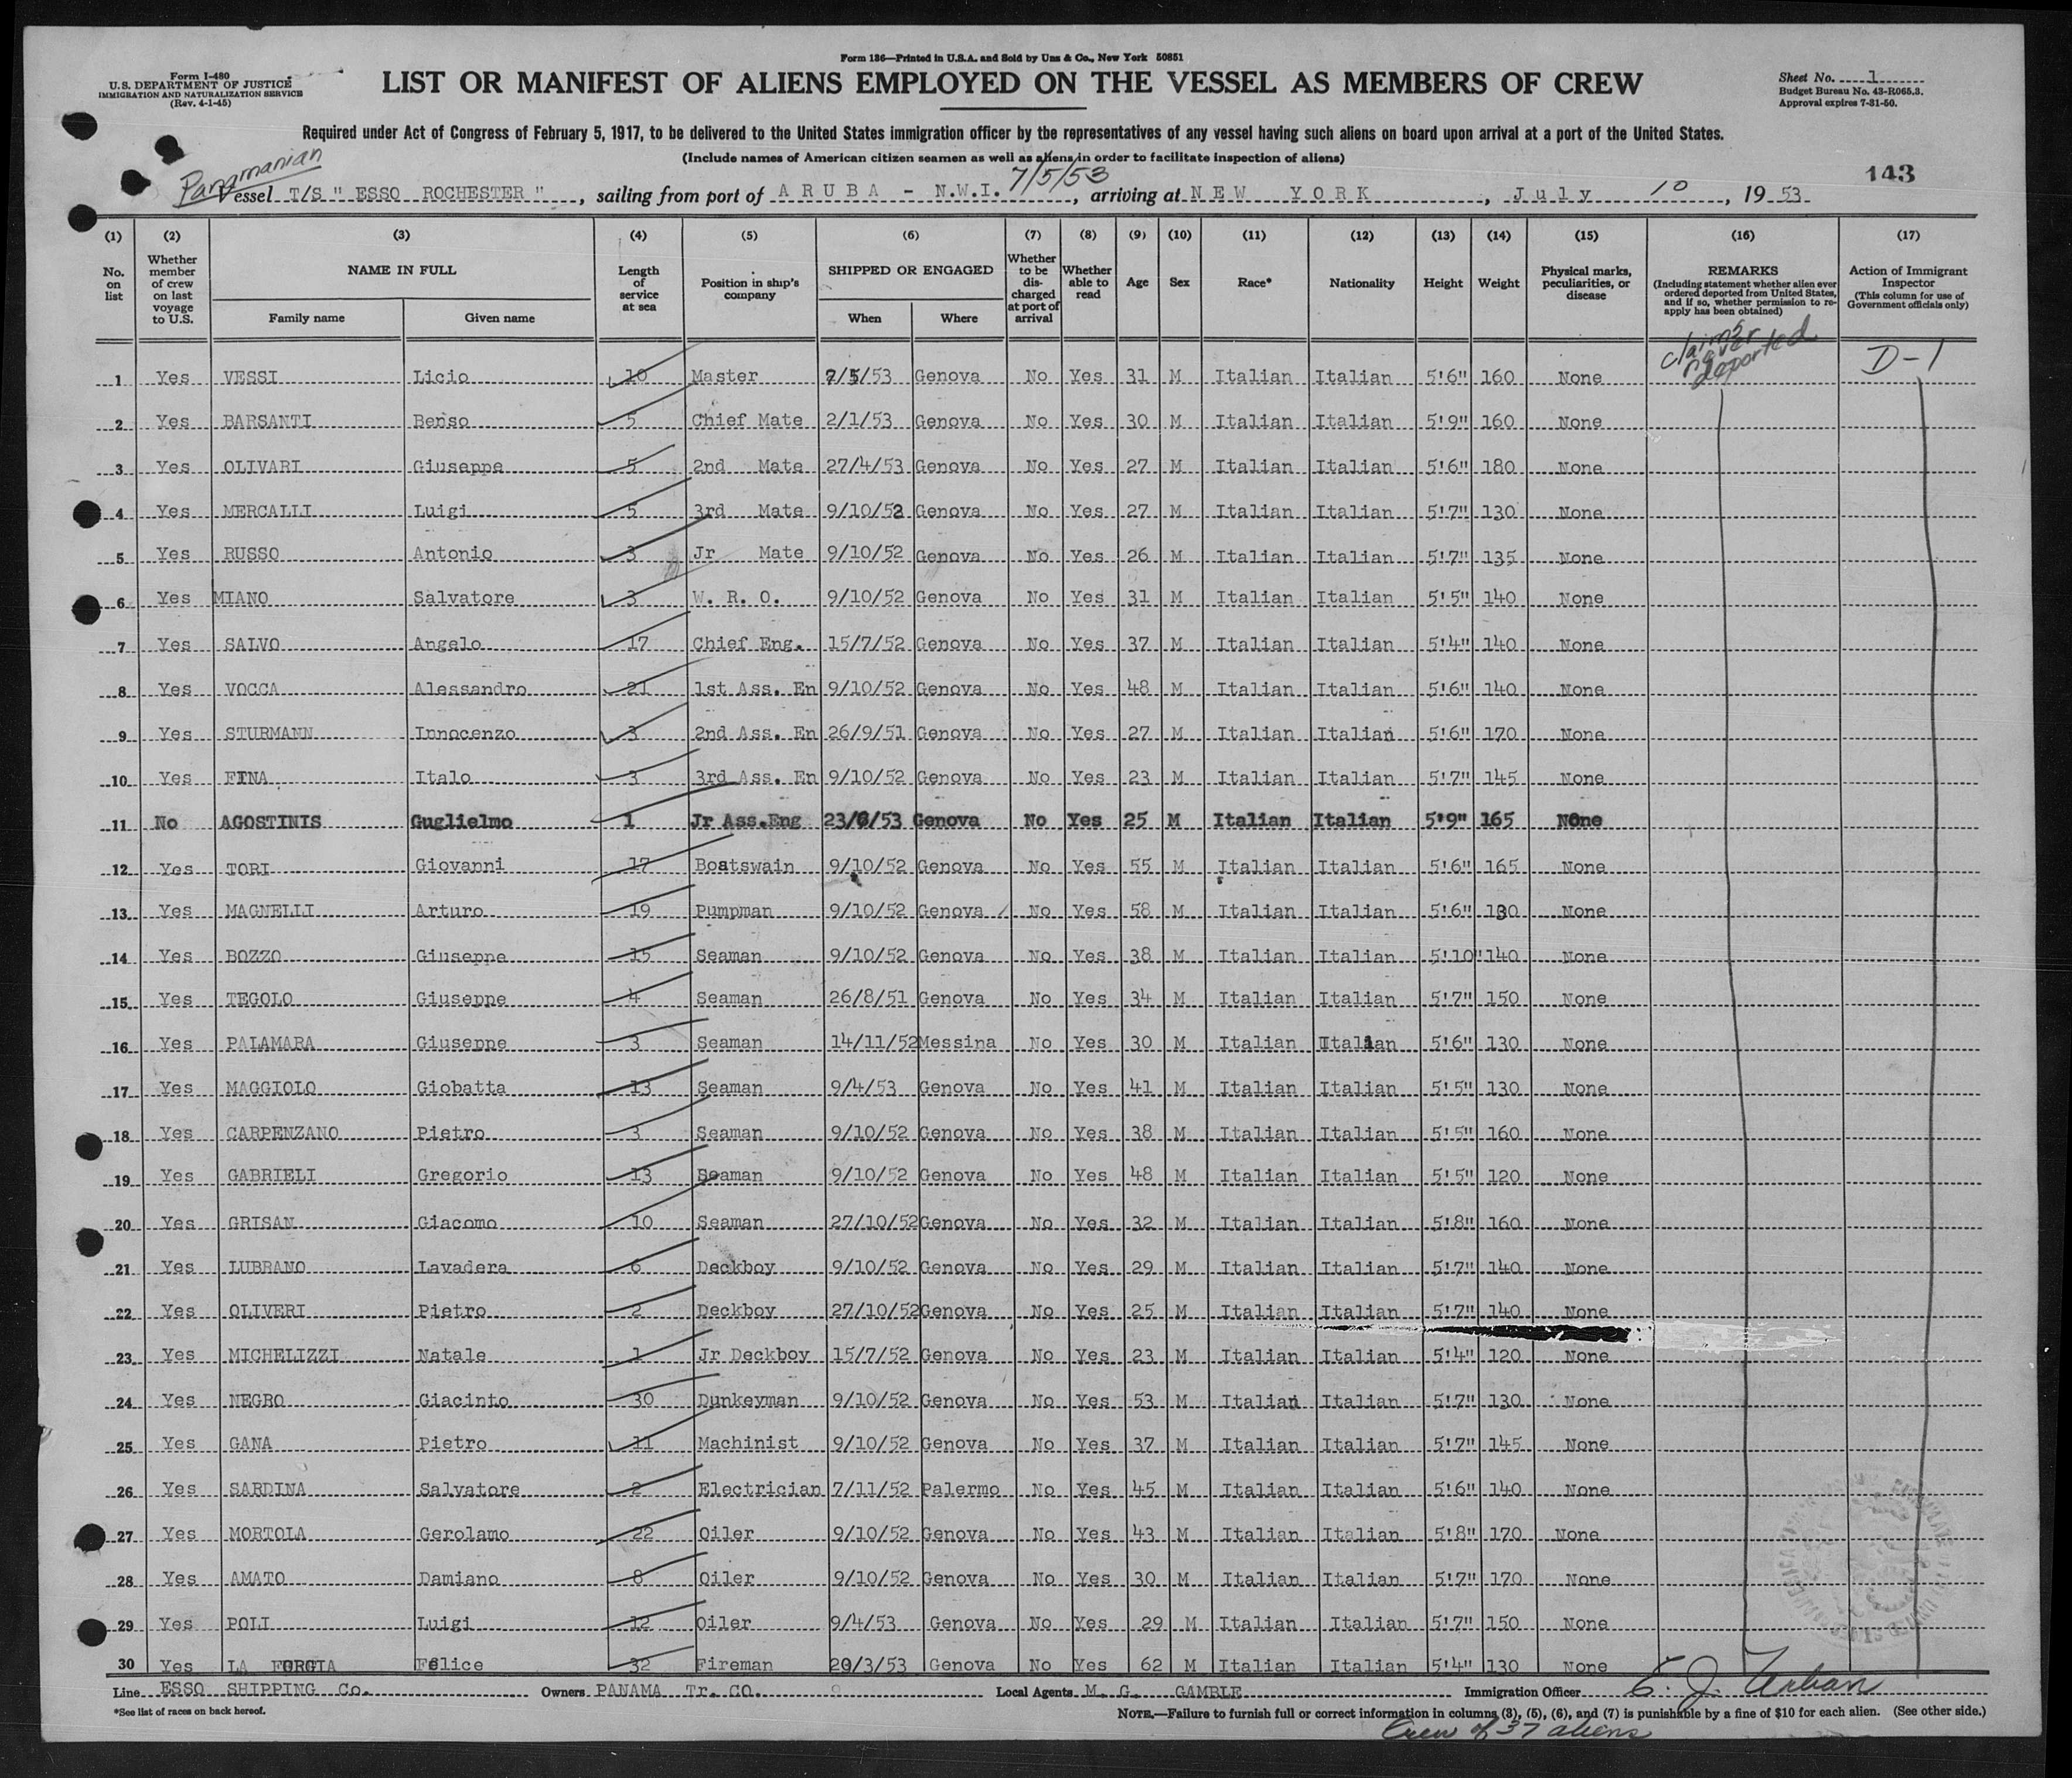 Form 136—Printed in U.S.A. and Sold by Unz & Co., New York 50851
Form I-480
U.S. DEPARTMENT OF JUSTICE
IMMIGRATION AND NATURALIZATION SERVICE
(Rev. 4-1-45)
LIST OR MANIFEST OF ALIENS EMPLOYED ON THE VESSEL AS MEMBERS OF CREW
Sheet No. 1
Budget Bureau No. 43-R065.3.
Approval expires 7-31-50.
Required under Act of Congress of February 5, 1917, to be delivered to the United States immigration officer by the representatives of any vessel having such aliens on board upon arrival at a port of the United States.
(Include names of American citizen seamen as well as aliens in order to facilitate inspection of aliens)
Panamanian
7/5/53
143
Vessel T/S " ESSO ROCHESTER ", sailing from port of ARUBA - N.W.I., arriving at NEW YORK, July 10, 19 53
(1) (2) (3) (4) (5) (6) (7) (8) (9) (10) (11) (12) (13) (14) (15) (16) (17)
No. on list
Whether member of crew on last voyage to U.S.
NAME IN FULL
Family name
Given name
Length of service at sea
Position in ship's company
SHIPPED OR ENGAGED
When
Where
Whether to be discharged at port of arrival
Whether able to read
Age
Sex
Race*
Nationality
Height
Weight
Physical marks, peculiarities, or disease
REMARKS
(Including statement whether alien ever ordered deported from United States, and if so, whether permission to reapply has been obtained)
Action of Immigrant Inspector
(This column for use of Government officials only)
claims never deported
D-1
1 Yes VESSI Licio 10 Master 7/5/53 Genova No Yes 31 M Italian Italian 5'6" 160 None
2 Yes BARSANTI Benso 5 Chief Mate 2/1/53 Genova No Yes 30 M Italian Italian 5'9" 160 None
3 Yes OLIVARI Giuseppe 5 2nd Mate 27/4/53 Genova No Yes 27 M Italian Italian 5'6" 180 None
4 Yes MERCALLI Luigi 5 3rd Mate 9/10/52 Genova No Yes 27 M Italian Italian 5'7" 130 None
5 Yes RUSSO Antonio 3 Jr Mate 9/10/52 Genova No Yes 26 M Italian Italian 5'7" 135 None
6 Yes MIANO Salvatore 3 W. R. O. 9/10/52 Genova No Yes 31 M Italian Italian 5'5" 140 None
7 Yes SALVO Angelo 17 Chief Eng. 15/7/52 Genova No Yes 37 M Italian Italian 5'4" 140 None
8 Yes VOCCA Alessandro 21 1st Ass. En 9/10/52 Genova No Yes 48 M Italian Italian 5'6" 140 None
9 Yes STURMANN Innocenzo 3 2nd Ass. En 26/9/51 Genova No Yes 27 M Italian Italian 5'6" 170 None
10 Yes FINA Italo 3 3rd Ass. En 9/10/52 Genova No Yes 23 M Italian Italian 5'7" 145 None
11 No AGOSTINIS Guglielmo 1 Jr Ass.Eng 23/6/53 Genova No Yes 25 M Italian Italian 5'9" 165 None
12 Yes TORI Giovanni 17 Boatswain 9/10/52 Genova No Yes 55 M Italian Italian 5'6" 165 None
13 Yes MAGNELLI Arturo 19 Pumpman 9/10/52 Genova No Yes 58 M Italian Italian 5'6" 130 None
14 Yes BOZZO Giuseppe 15 Seaman 9/10/52 Genova No Yes 38 M Italian Italian 5'10" 140 None
15 Yes TEGOLO Giuseppe 4 Seaman 26/8/51 Genova No Yes 34 M Italian Italian 5'7" 150 None
16 Yes PALAMARA Giuseppe 3 Seaman 14/11/52 Messina No Yes 30 M Italian Italian 5'6" 130 None
17 Yes MAGGIOLO Giobatta 13 Seaman 9/4/53 Genova No Yes 41 M Italian Italian 5'5" 130 None
18 Yes CARPENZANO Pietro 3 Seaman 9/10/52 Genova No Yes 38 M Italian Italian 5'5" 160 None
19 Yes GABRIELI Gregorio 13 Seaman 9/10/52 Genova No Yes 48 M Italian Italian 5'5" 120 None
20 Yes GRISAN Giacomo 10 Seaman 27/10/52 Genova No Yes 32 M Italian Italian 5'8" 160 None
21 Yes LUBRANO Lavadera 6 Deckboy 9/10/52 Genova No Yes 29 M Italian Italian 5'7" 140 None
22 Yes OLIVERI Pietro 2 Deckboy 27/10/52 Genova No Yes 25 M Italian Italian 5'7" 140 None
23 Yes MICHELIZZI Natale 1 Jr Deckboy 15/7/52 Genova No Yes 23 M Italian Italian 5'4" 120 None
24 Yes NEGRO Giacinto 30 Dunkeyman 9/10/52 Genova No Yes 53 M Italian Italian 5'7" 130 None
25 Yes GANA Pietro 11 Machinist 9/10/52 Genova No Yes 37 M Italian Italian 5'7" 145 None
26 Yes SARDINA Salvatore 2 Electrician 7/11/52 Palermo No Yes 45 M Italian Italian 5'6" 140 None
27 Yes MORTOLA Gerolamo 22 Oiler 9/10/52 Genova No Yes 43 M Italian Italian 5'8" 170 None
28 Yes AMATO Damiano 8 Oiler 9/10/52 Genova No Yes 30 M Italian Italian 5'7" 170 None
29 Yes POLI Luigi 12 Oiler 9/4/53 Genova No Yes 29 M Italian Italian 5'7" 150 None
30 Yes LA FORGIA Felice 32 Fireman 20/3/53 Genova No Yes 62 M Italian Italian 5'4" 130 None
Line ESSO SHIPPING Co. Owners PANAMA Tr. CO. Local Agents M. G. GAMBLE Immigration Officer E. J. Urban
*See list of races on back hereof.
NOTE.—Failure to furnish full or correct information in columns (3), (5), (6), and (7) is punishable by a fine of $10 for each alien. (See other side.)
Crew of 37 aliens